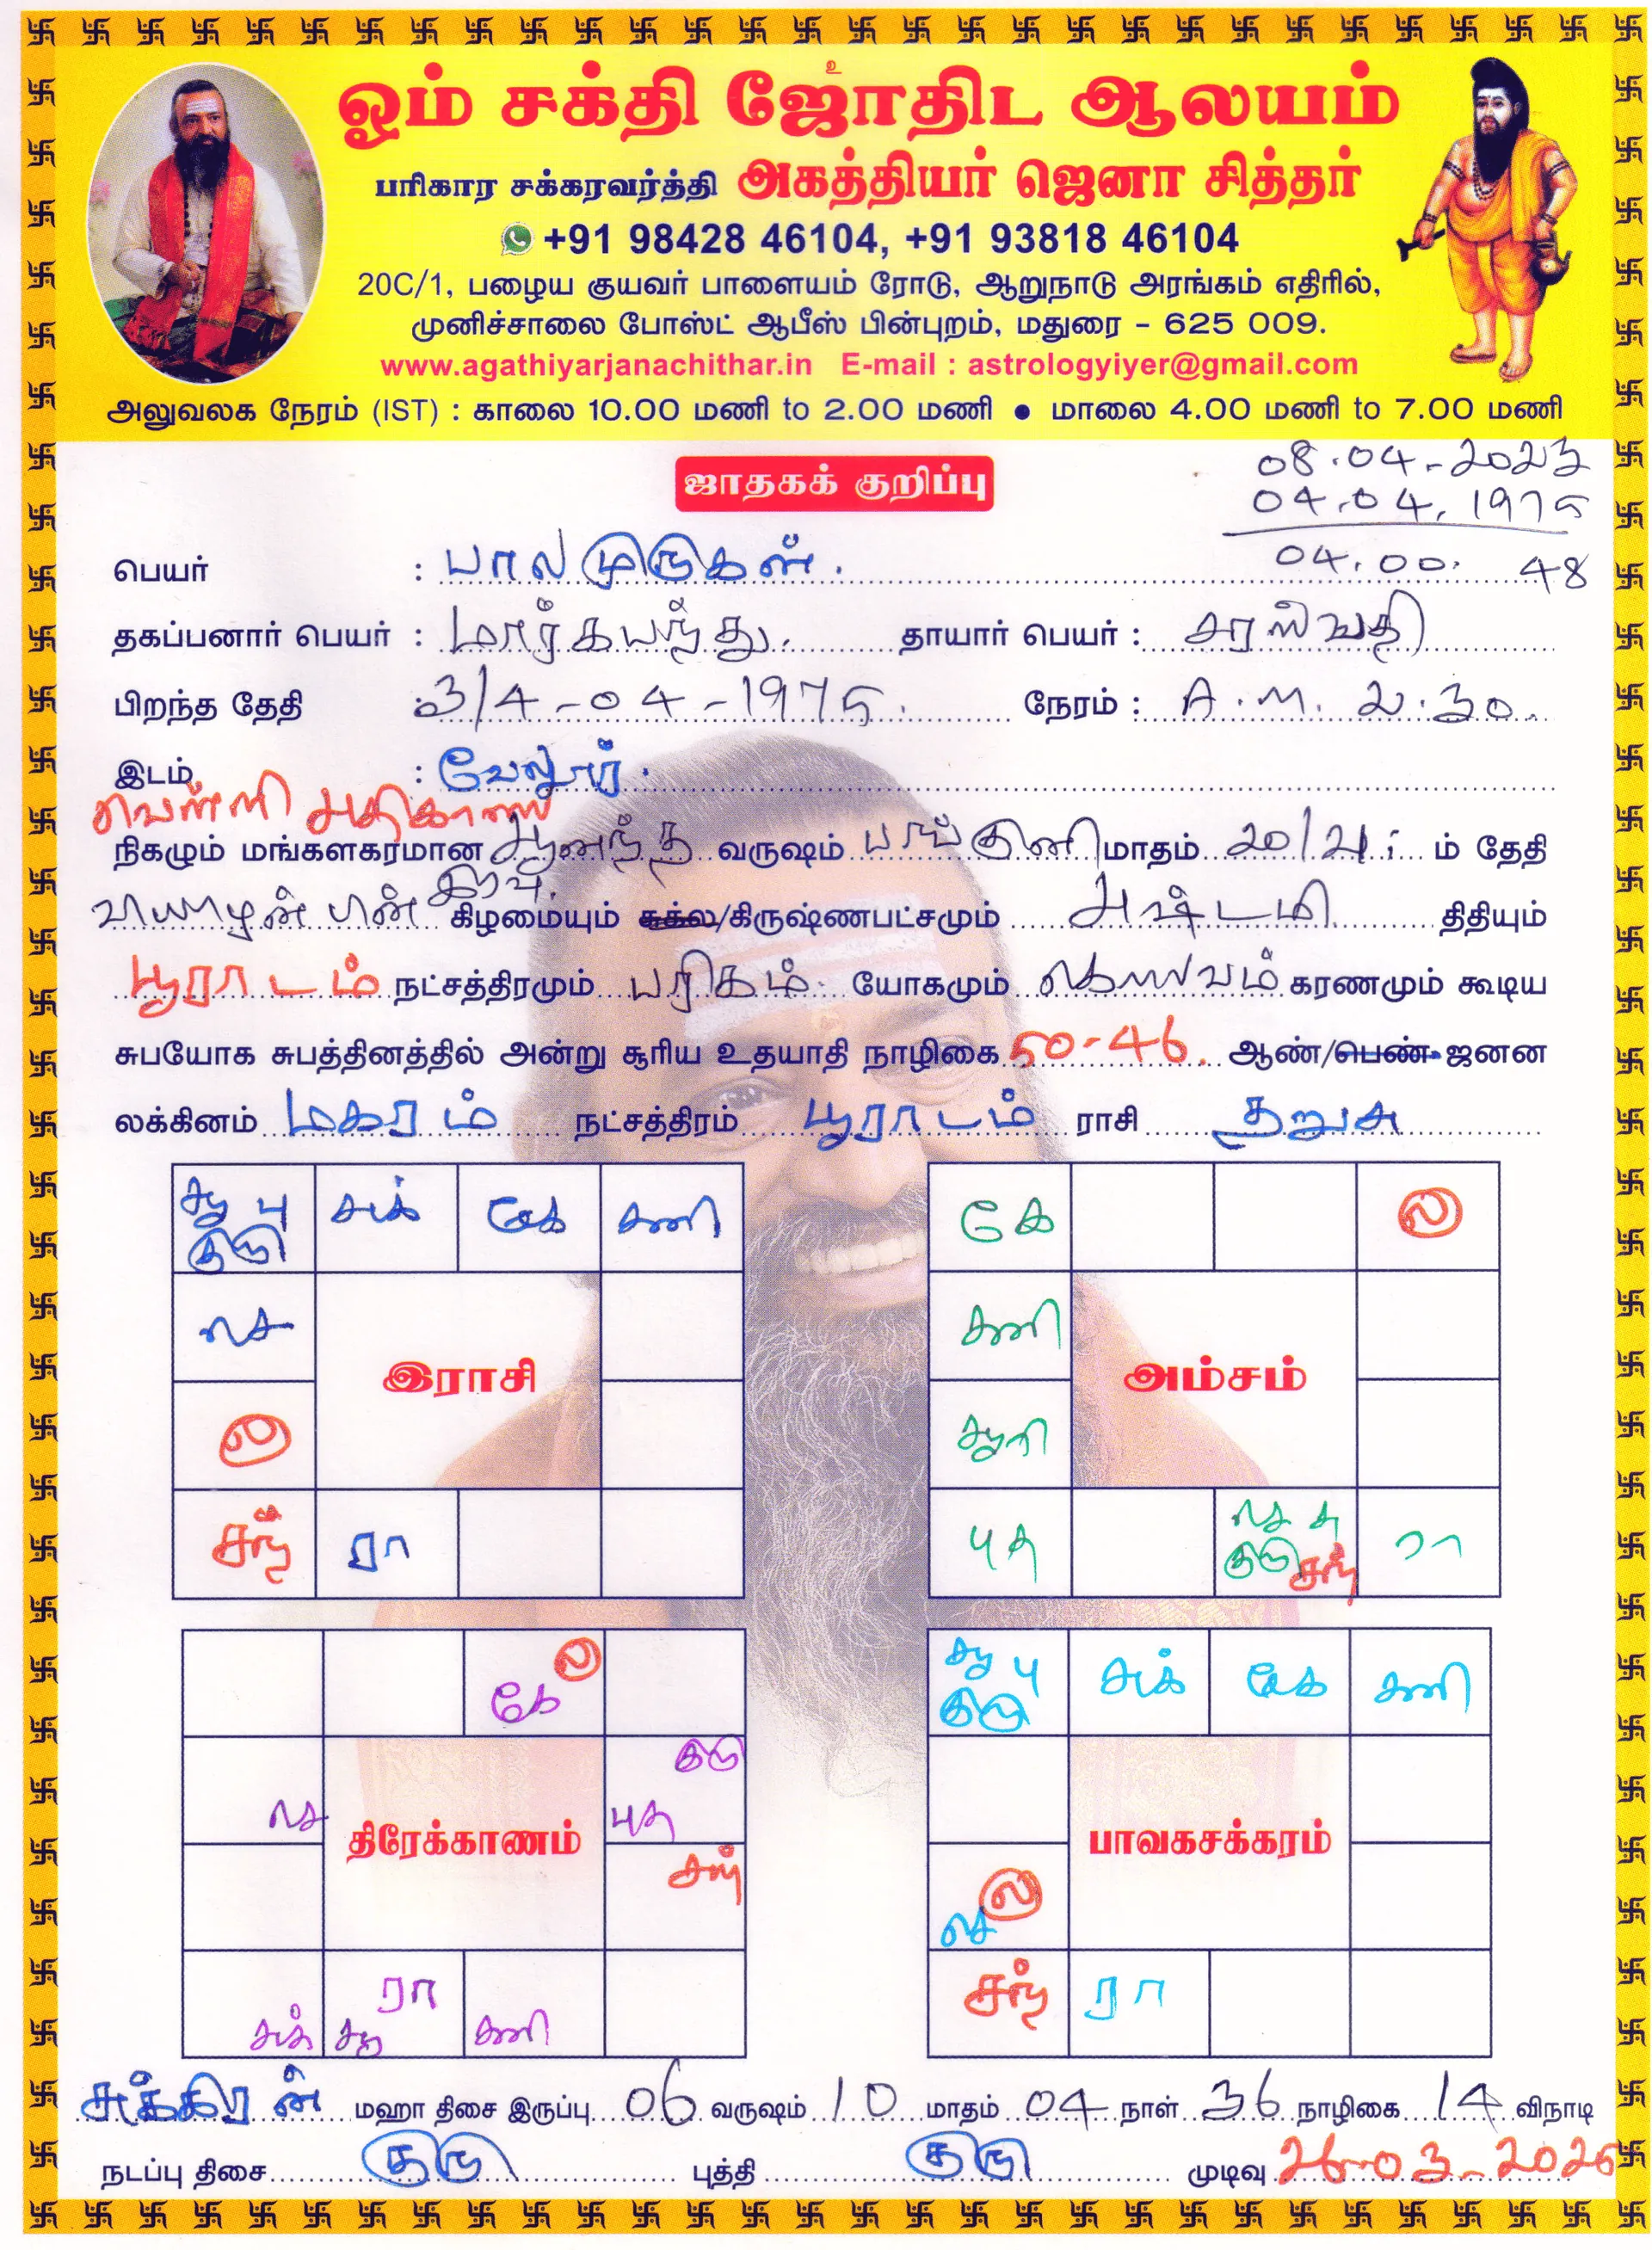 ஓம் சக்தி ஜோதிட ஆலயம்
பரிகார சக்கரவர்த்தி அகத்தியர் ஜெனா சித்தர்
+91 98428 46104, +91 93818 46104
20C/1, பழைய குயவர் பாளையம் ரோடு, ஆறுநாடு அரங்கம் எதிரில்,
முனிச்சாலை போஸ்ட் ஆபீஸ் பின்புறம், மதுரை - 625 009.
www.agathiyarjanachithar.in E-mail : astrologyiyer@gmail.com
அலுவலக நேரம் (IST) : காலை 10.00 மணி to 2.00 மணி ● மாலை 4.00 மணி to 7.00 மணி
08.04.2023
ஜாதகக் குறிப்பு
04.04.1975
04.00. 48
பெயர் : பாலமுருகன்.
தகப்பனார் பெயர் : தாயார் பெயர் : சரஸ்வதி
பிறந்த தேதி : 3/4-04-1975. நேரம் : A.M. 2.30.
இடம் : வேலூர்.
வெள்ளி அதிகாலை
நிகழும் மங்களகரமான ஆனந்த வருஷம் பங்குனி மாதம் 20/21 ம் தேதி
வியாழன் பின் இரவு கிழமையும் சுக்ல/கிருஷ்ணபட்சமும் அஷ்டமி திதியும்
பூராடம் நட்சத்திரமும் பரிகம் யோகமும் கரணமும் கூடிய
சுபயோக சுபத்தினத்தில் அன்று சூரிய உதயாதி நாழிகை 50-46. ஆண்/பெண் ஜனன
லக்கினம் மகரம் நட்சத்திரம் பூராடம் ராசி தனுசு
சூ பு குரு சுக் கே சனி
கே ல
செ
சனி
இராசி
அம்சம்
ல
சூரி
சந் ரா
புத செ சு குரு சந் ரா
கே ல
சூ பு குரு சுக் கே சனி
குரு
செ திரேக்காணம் புத
பாவகசக்கரம்
சந்
ல செ
சுக் சூ ரா சனி
சந் ரா
சுக்கிரன் மஹா திசை இருப்பு 06 வருஷம் 10 மாதம் 04 நாள் 36 நாழிகை 14 விநாடி
நடப்பு திசை குரு புத்தி குரு முடிவு 26-03-2025